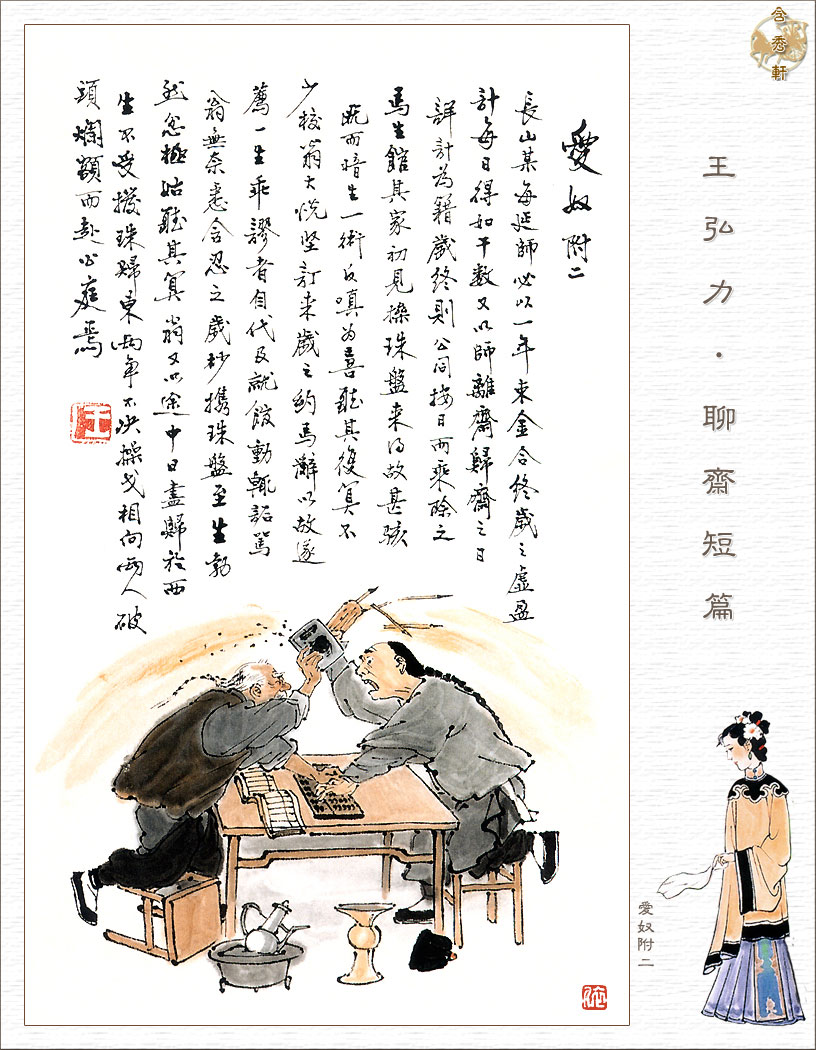 含秀軒
王弘力·聊齋短篇
愛奴附二
長山某每延師必以一年束金合終歲之虛盈
計每日得如干數又以師離齋歸齋之日
詳計為籍歲終則公同按日而乘除之
馬生館其家初見操珠盤来得故甚駭
既而暗生一術反嗔為喜聽其復算不
少校翁大悅堅訂来歲之約馬辭以故遂
薦一生乖謬者自代及就館動輒詬罵
翁無奈悉含忍之歲杪攜珠盤至生勃
然忿極姑聽其算翁又以途中日盡歸於西
生不受撥珠歸東兩爭不決操戈相向兩人破
頭爛額而赴公庭焉
王
愛奴附二